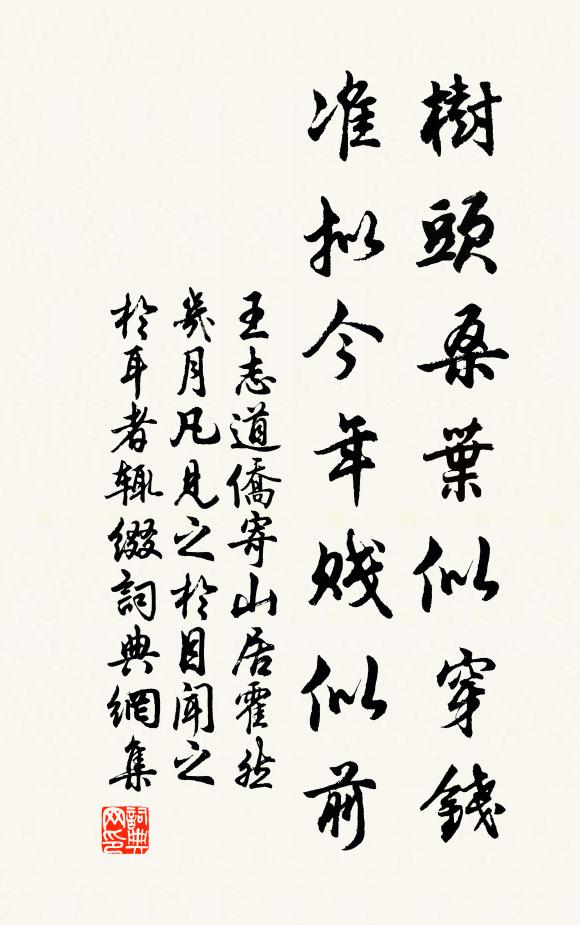 樹頭桑葉似穿錢
准拟今年賤似前
王志道僑寄山居霍然
幾月凡見之於目聞之
於耳者輒綴詞典網集
詞典網印